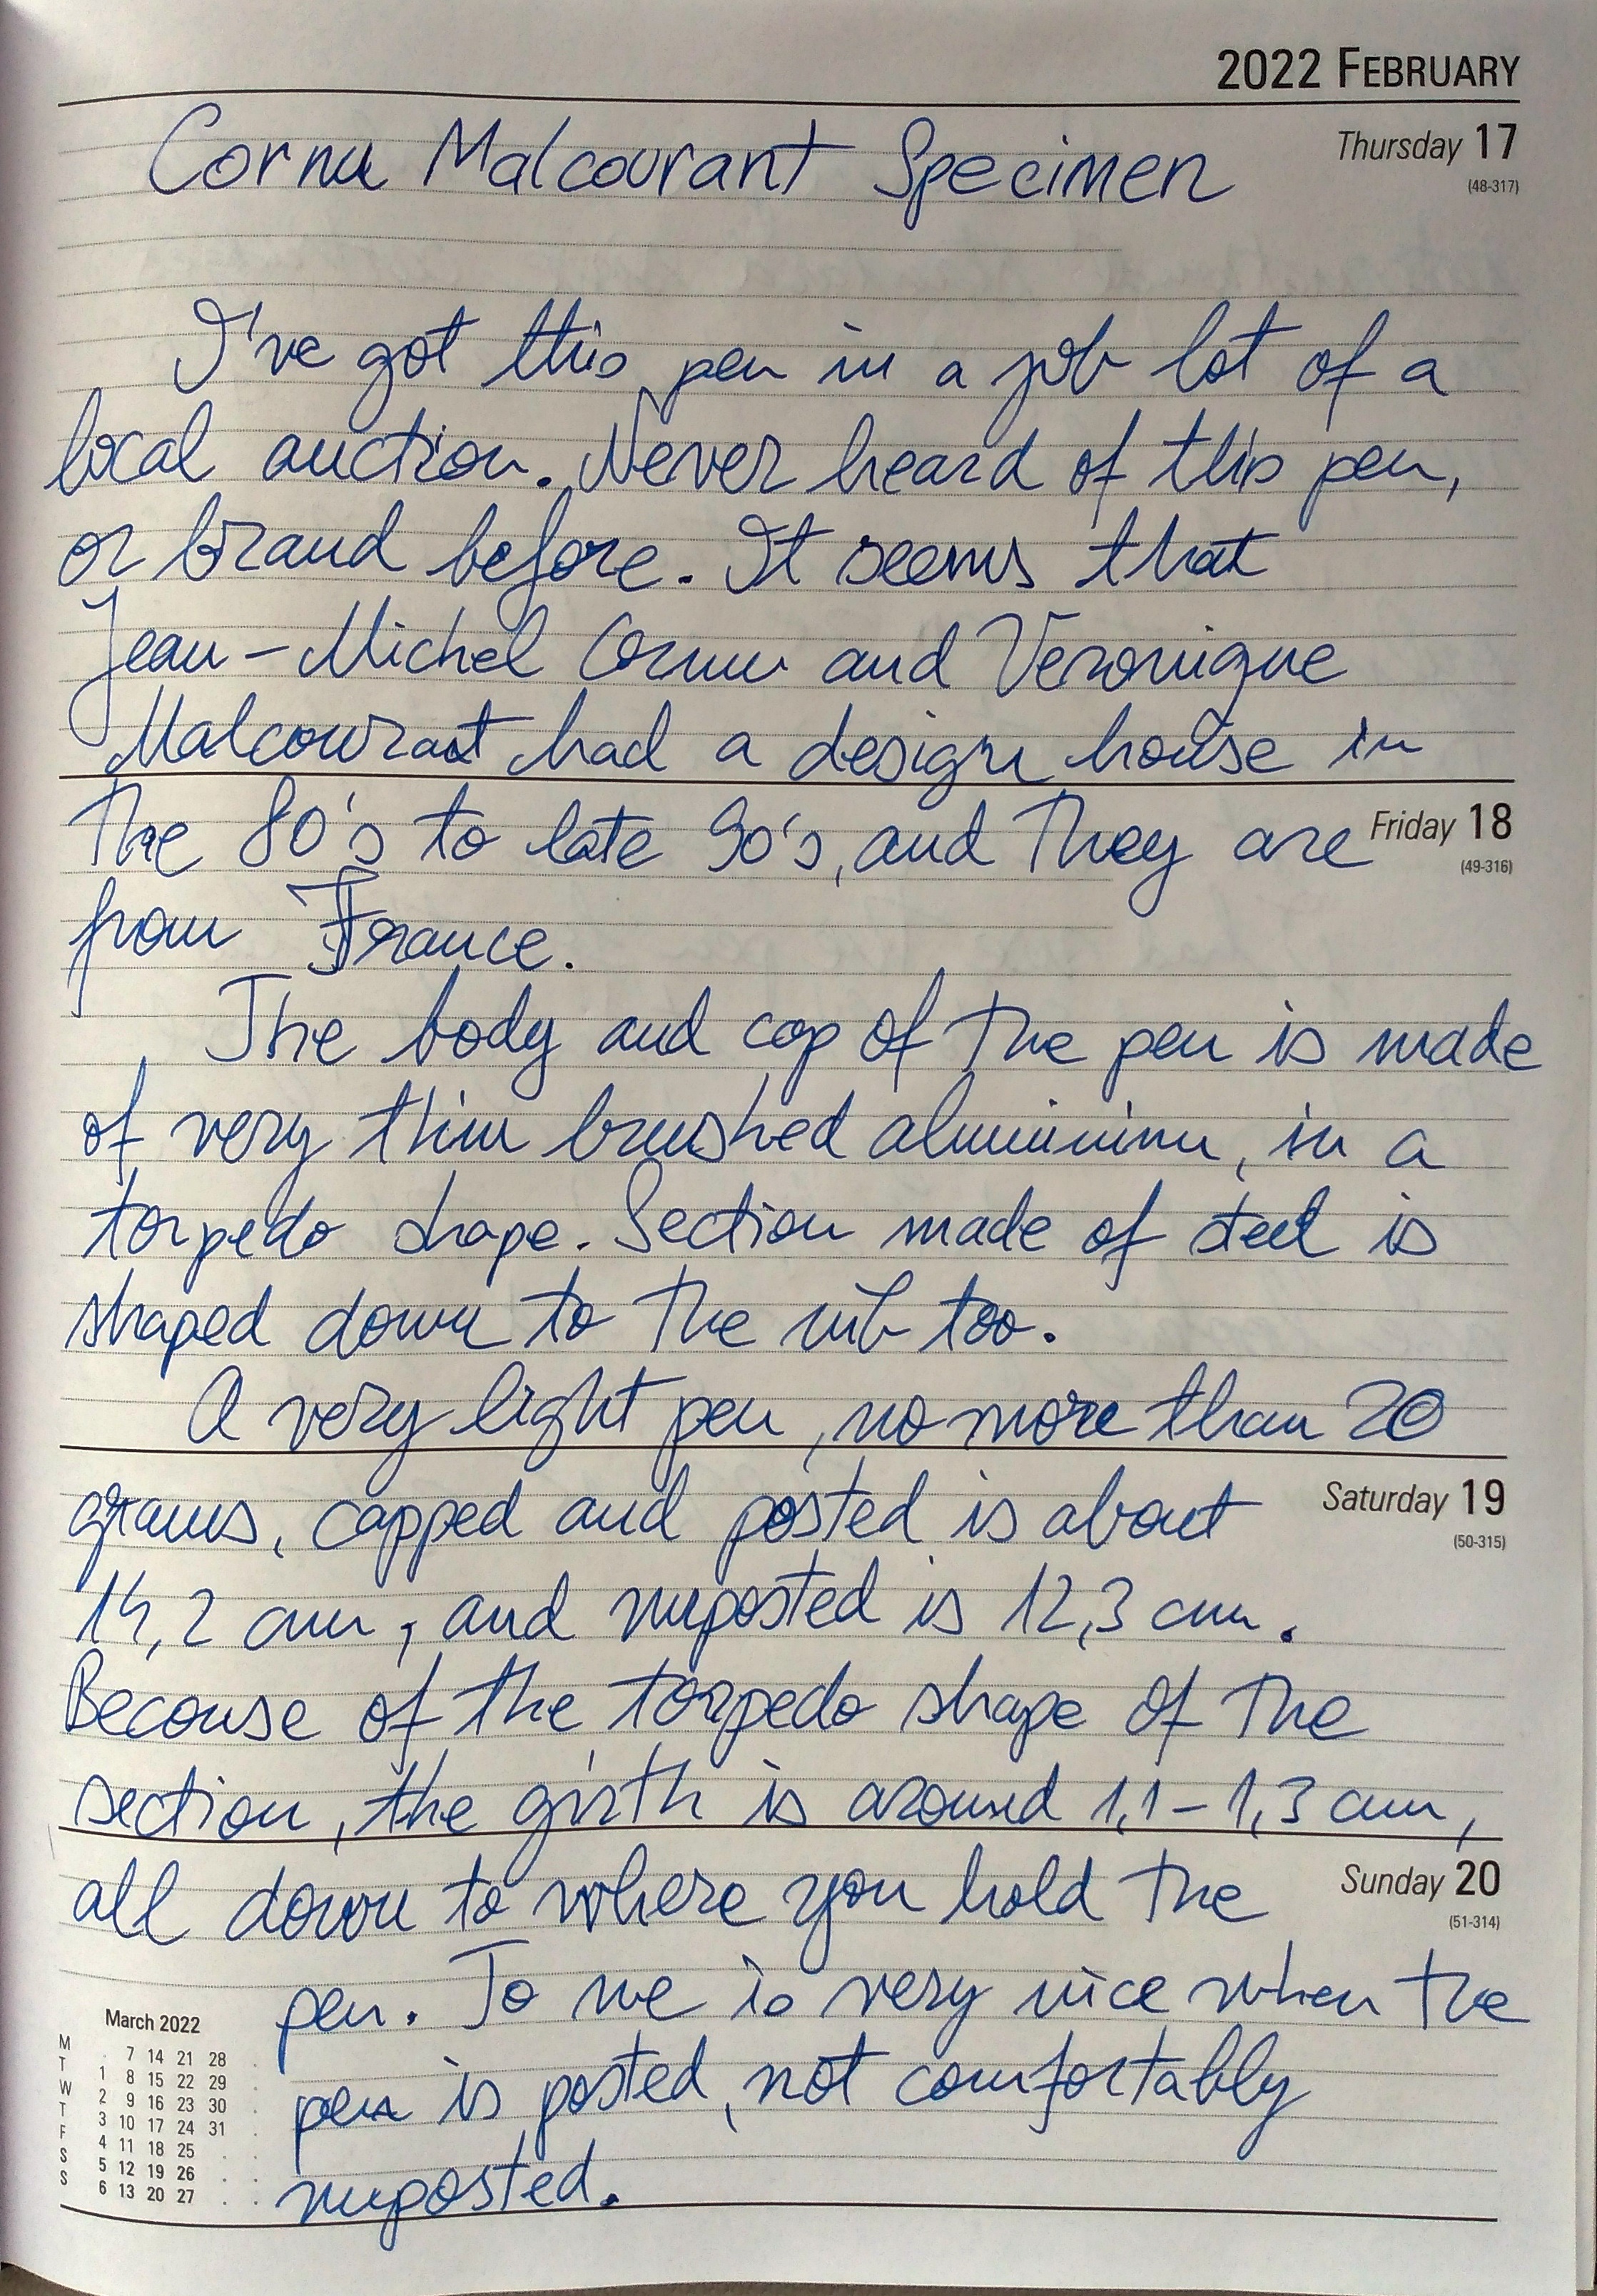 2022 FEBRUARY
Thursday 17
(48-317)
Cornu Malcourant Specimen
I've got this pen in a job lot of a
local auction. Never heard of this pen,
or brand before. It seems that
Jean-Michel Cornu and Veronique
Malcourant had a design house in
the 80's to late 90's, and they are
Friday 18
(49-316)
from France.
The body and cap of the pen is made
of very thin brushed aluminium, in a
torpedo shape. Section made of steel is
shaped down to the nib too.
A very light pen, no more than 20
grams, capped and posted is about
Saturday 19
(50-315)
14,2 cm, and unposted is 12,3 cm.
Becouse of the torpedo shape of the
section, the girth is around 1,1-1,3 cm,
all down to where you hold the
Sunday 20
(51-314)
pen. To me is very nice when the
pen is posted, not comfortably
unposted.
March 2022
M . 7 14 21 28 .
T 1 8 15 22 29 .
W 2 9 16 23 30 .
T 3 10 17 24 31 .
F 4 11 18 25 . .
S 5 12 19 26 . .
S 6 13 20 27 . .